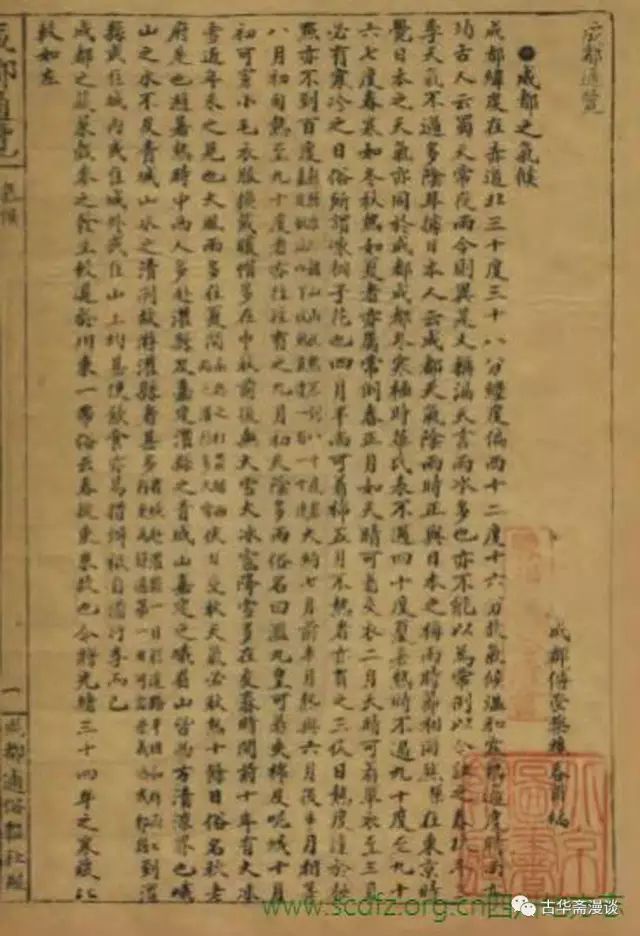 成都通覽
成都傅崇榘樵春甫編
●成都之氣候
成都緯度在赤道北三十度三十八分經度偏西十二度十六分故氣候溫和寒熱適度時雨
功古人云蜀天常夜雨今則異是文稱漏天言雨水多也亦不能以為常例以今論之春秋
季天氣不過多陰耳據日本人云成都天氣陰雨時正與日本之梅雨時節相同
在東京時
覺日本之天氣亦同於成都成都冬寒極時華氏表不過四十度夏暑熱時不過九十度至九十
六七度春寒如冬秋熱如夏者亦屬常例春正月如天晴可着夾衣二月天晴可着單衣至三月
必有寒冷之日俗所謂凍桐子花也四月單雨可着棉五月不熱者亦有之三伏日熱度
熱亦不到百度
大約七月前半月熱與六月後半月相等
八月初旬熱至九十度者亦往往有之九月初天陰多雨俗名曰濫九皇可着夾棉及呢絨十月
初可穿小毛衣服換戴暖帽多在中秋前後無大雪大冰雹降雪多在冬春時間前十年有大冰
雹近年未之見也大風雨多在夏間
伏日交秋天氣必秋熱十餘日俗名秋老
虎是也避暑熱時中西人多赴灌縣及嘉定灌縣之青城山嘉定之峨眉山皆為方清涼界也峨
山之水不及青城山水之清冽故游灌縣者甚多
到灌
縣或住城內或住城外或住山上均甚便飲食亦易措辦祇自備行李而已
成都之蔬菜戲本之發生較遲於川東一帶俗云春從東來故也今將光緒三十四年之寒暖比
較如左
成都通覽
氣候
一
成都通俗報社印
www.scdfz.org.cn
古华斋漫谈